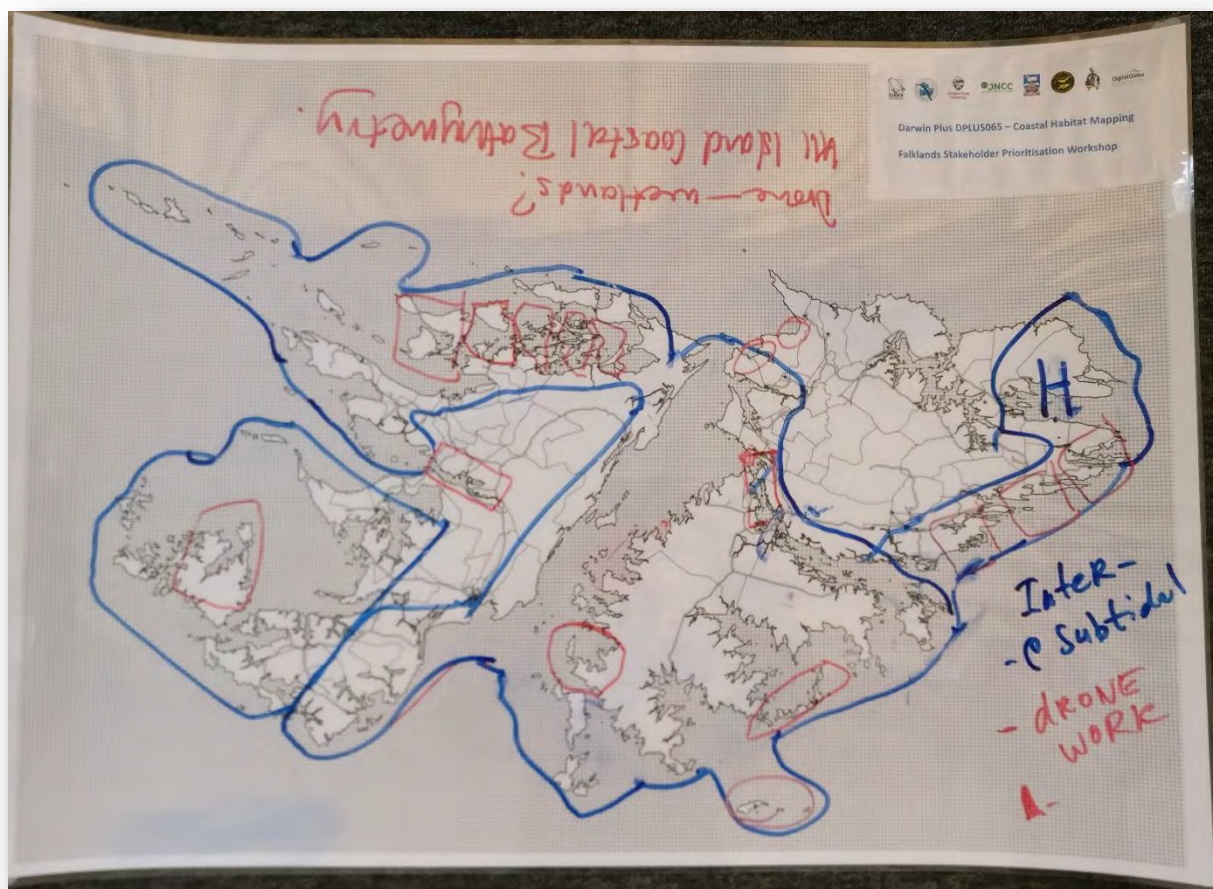 JNCC
DigitalGlobe
Darwin Plus DPLUS065 – Coastal Habitat Mapping
Falklands Stakeholder Prioritisation Workshop
Drone – wetlands?
All Island Coastal Bathymetry.
H
Inter-
- e Subtidal
- dRONE
WORK